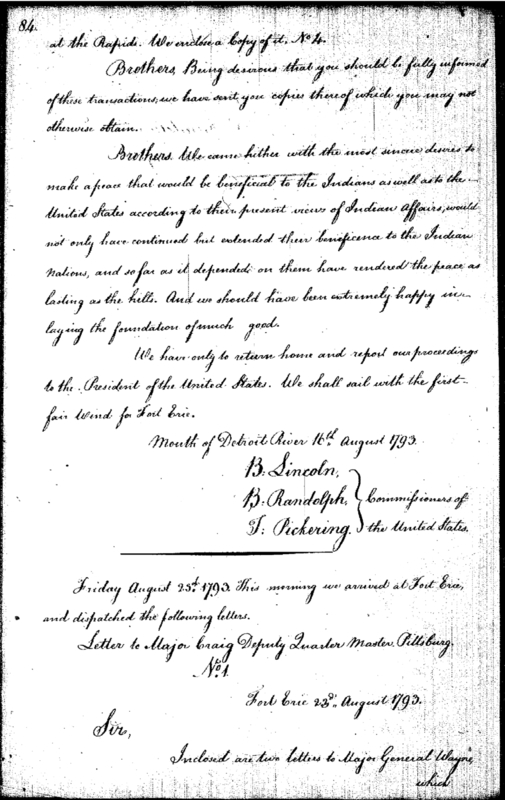 84.
at the Rapids. We enclose a Copy of it, No 4.
Brothers, Being desirous that you should be fully informed
of these transactions, we have sent you copies thereof which you may not
otherwise obtain.
Brothers. We came hither with the most sincere desires to
make a peace that would be beneficial to the Indians as well as to the
United States according to their present views of Indian Affairs, would
not only have continued but extended their beneficence to the Indian
Nations, and so far as it depended on them have rendered the peace as
lasting as the hills. And we should have been extremely happy in
laying the foundation of much good.
We have only to return home and report our proceedings
to the President of the United States. We shall sail with the first
fair Wind for Fort Erie.
Mouth of Detroit River 16th August 1793.
B. Lincoln,
B. Randolph, Commissioners of
T. Pickering. the United States.
Friday August 23d 1793. This morning we arrived at Fort Erie,
and dispatched the following letters.
Letter to Major Craig Deputy Quarter Master Pittsburg.
No 1.
Fort Erie 23d August 1793.
Sir,
Inclosed are two letters to Major General Wayne,
which